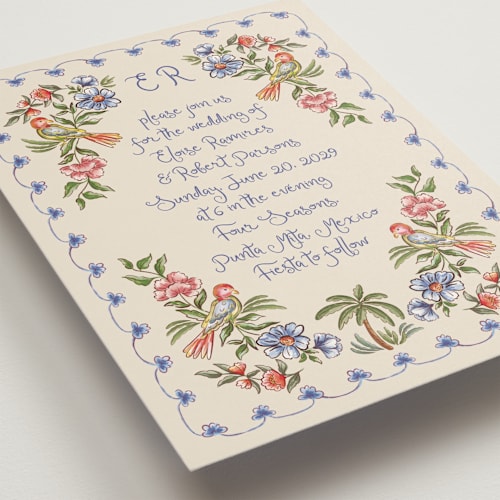 E R
please join us
for the wedding of
Eloise Ramires
& Robert Parsons
Sunday June 20, 2029
at 6 in the evening
Four Seasons
Punta Mita Mexico
Fiesta to follow